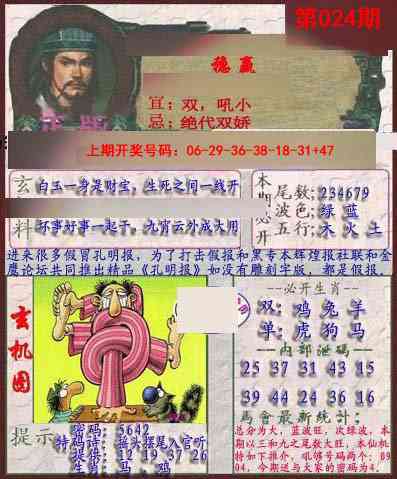 第024期
稳赢
宜；双，吼小
忌；绝代双娇
上期开奖号码：06-29-36-38-18-31+47
玄
料
白玉一身是财宝，生死之间一线开
坏事好事一起干。九霄云外成大用
本期必开
尾数；234679
波色；绿 蓝
五行；木 火 土
进来很多假冒孔明报，为了打击假报和黑专本辉煌报社联和金
鹰论坛共同推出精品《孔明报》如没有雕刻字版，都是假报。
玄机图
必开生肖
双：鸡 兔 羊
单：虎 狗 马
内部泄码
25 37 31 43 15
39 44 24 36 16
馬會最新統計：
总分为大，蓝波旺，次绿波，本
期以三和九之尾数大旺，本仙机
持如下推介，吼够号码两个：
04，今期送与大家的密码为4.
提示
密码：5642
特码诗：摇头摆尾入官听
提供：12 19 37 26
生肖：马，鸡